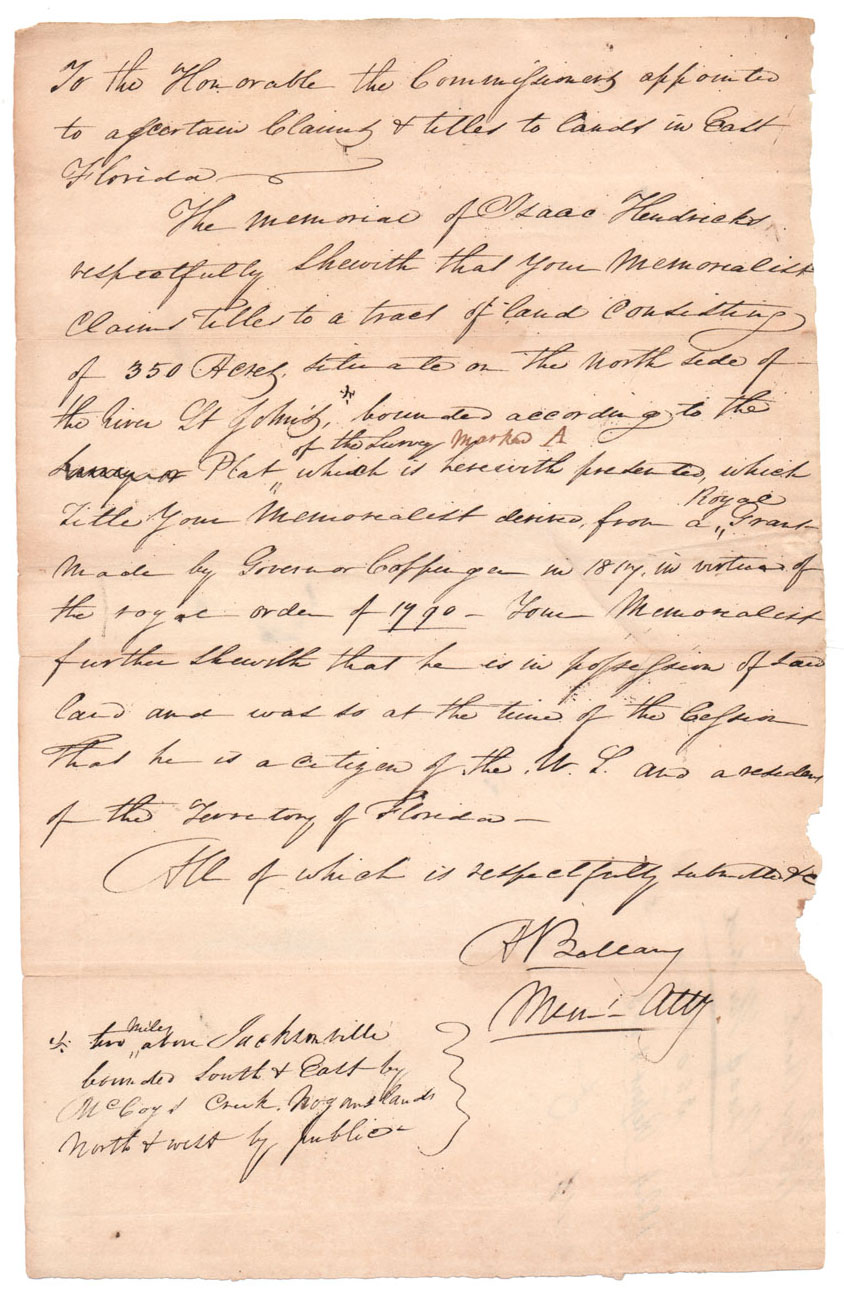 To the Honorable the Commissioners appointed
to ascertain Claims & titles to lands in East
Florida
The memorial of Isaac Hendricks
respectfully Shewith that Your Memorialist
Claims titles to a tract of land Consisting
of 350 Acres, situate on the North side of
the River St John's, bounded according to the
of the Survey marked A
Plat which is herewith presented, which
Royal
Title Your Memorialist derives from a Grant
Made by Governor Coppinger in 1817, in virtue of
the royal order of 1790 - Your Memorialist
further Shewith that he is in possession of said
land and was so at the time of the Cession
That he is a citizen of the U. S. and a resident
of the Territory of Florida -
All of which is respectfully submitted &c
A Bellamy
Mem.l Atty.
Miles
two above Jacksonville
bounded South & East by
McCoys Creek. Hogans lands
North & west by public